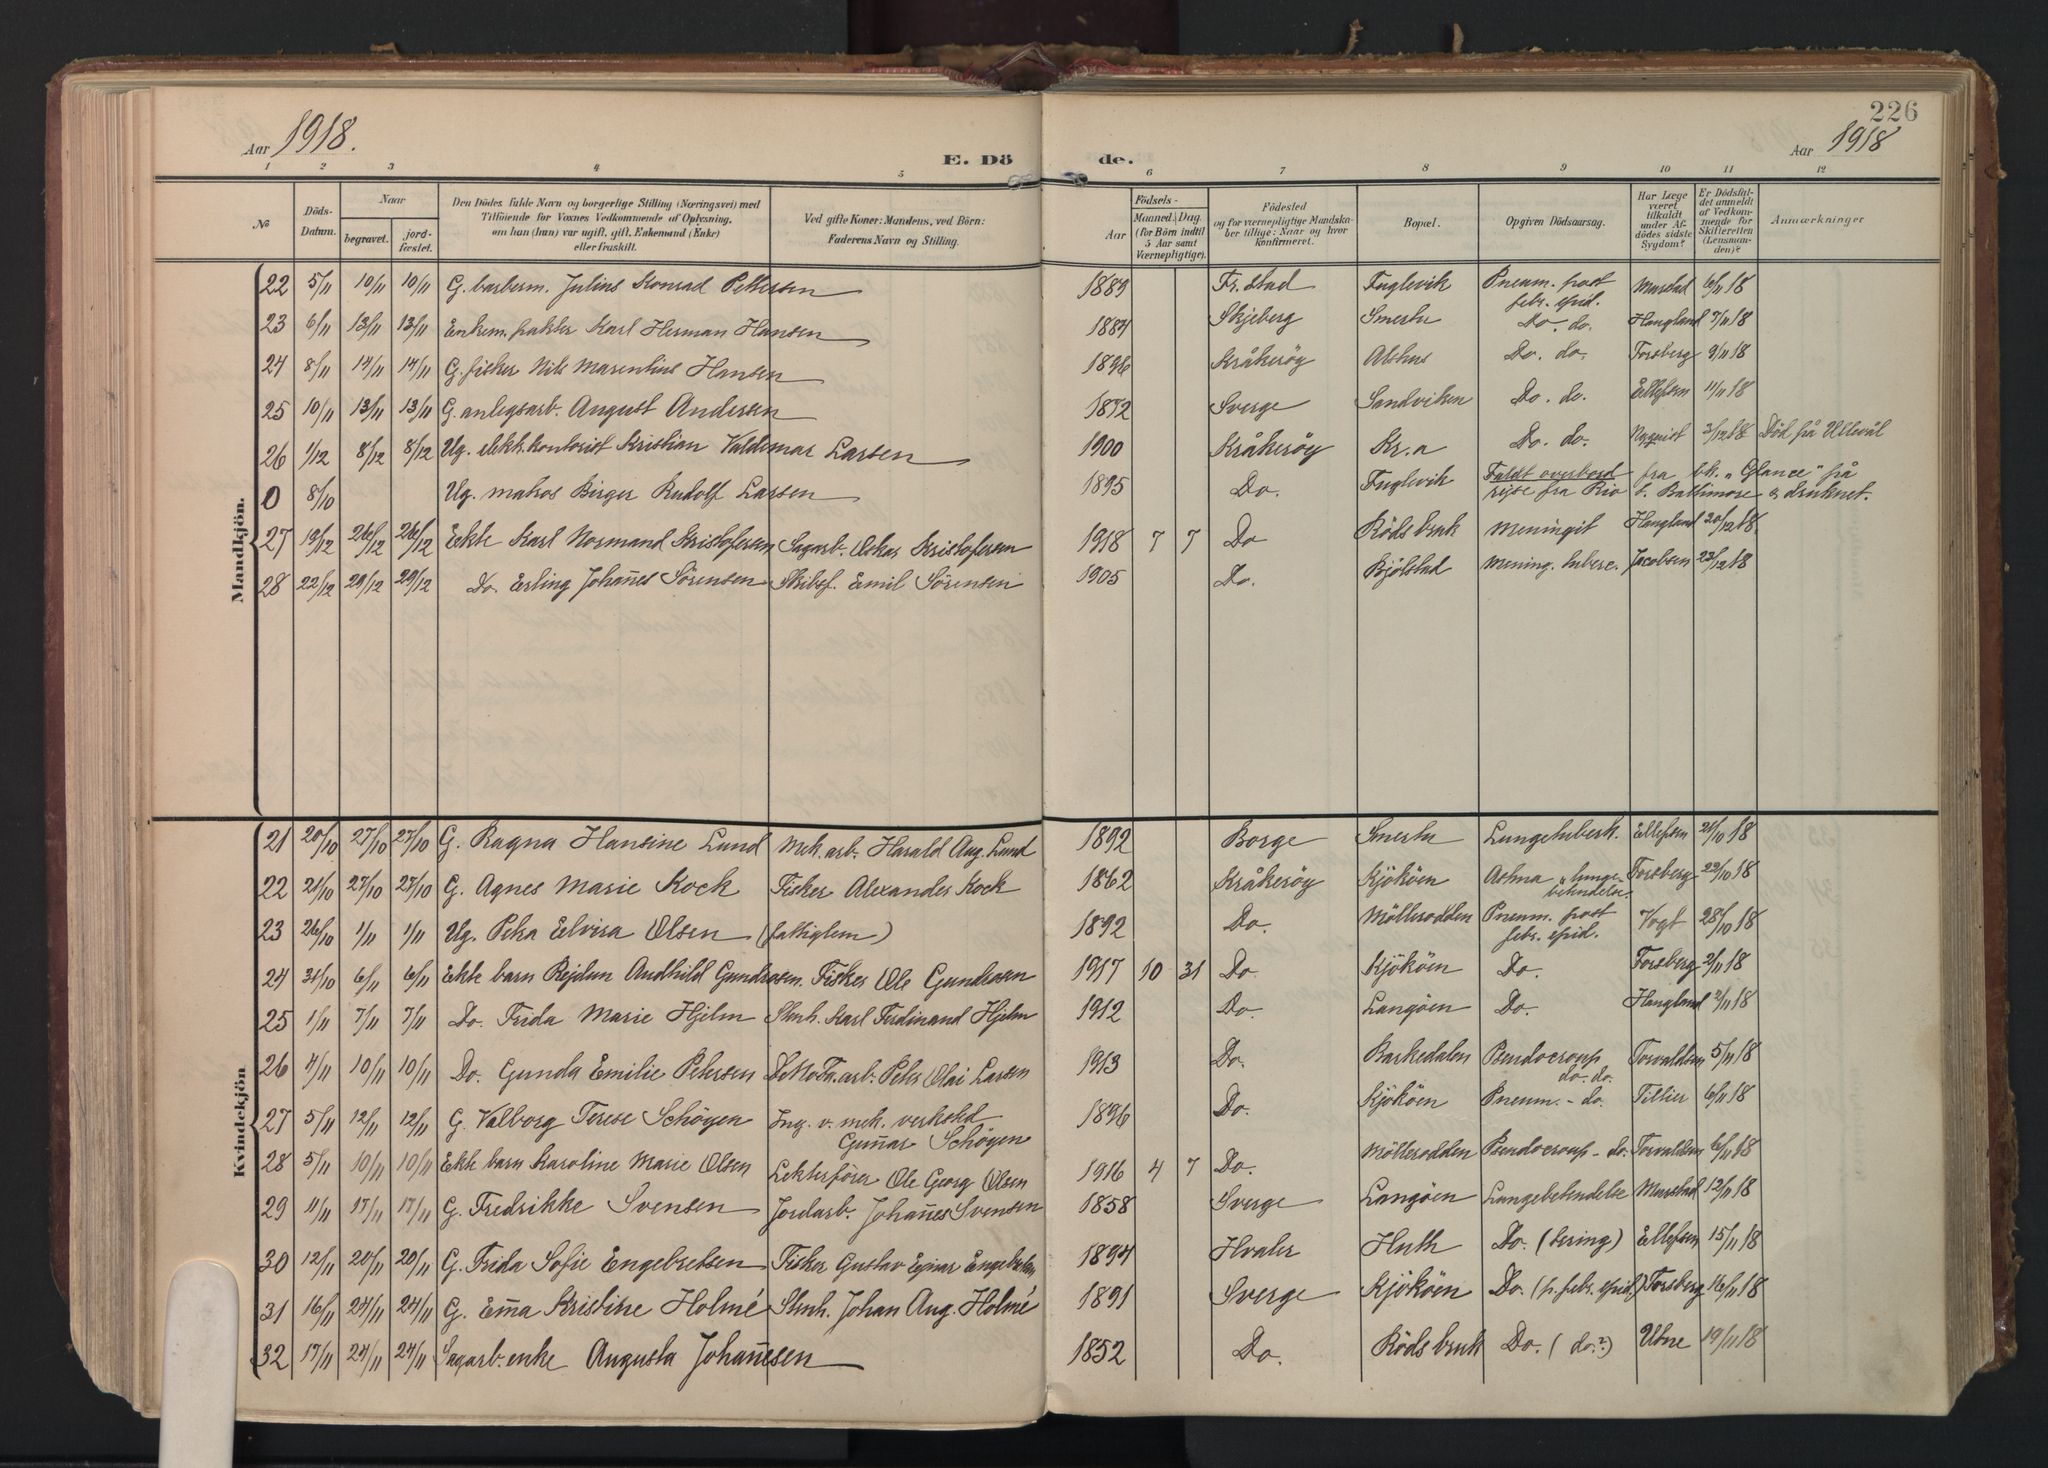 226
Aar 1918.
E. Dö de.
Aar 1918
1 2 3 4 5 6 7 8 9 10 11 12
№ Döds-Datum. Naar begravet. jord-fæstet. Den Dödes fulde Navn og borgerlige Stilling (Næringsvei) med Tilföiende for Voxnes Vedkommende af Oplysning, om han (hun) var ugift, gift, Enkemand (Enke) eller fraskilt. Ved gifte Koner: Mandens, ved Börn: Faderens Navn og Stilling. Födsels- Aar Maaned. Dag. (for Börn indtil 5 Aar samt Værnepligtige). Födested og for værnepligtige Mandskaber tillige: Naar og hvor konfirmeret. Bopæl. Opgiven Dödsaarsag. Har Læge været tilkaldt under Afdödes sidste Sygdom? Er Dödsfaldet anmeldt af Vedkommende for Skifteretten (Lensmanden)? Anmærkninger
Mandkjön.
22 5/11 10/11 10/11 G. barberm. Julius Konrad Pettersen 1889 Fr.stad Fuglevik Pneum. post febr. epid. Marstad 6/11 18
23 6/11 13/11 13/11 Enkem. pakker Karl Herman Hansen 1884 Skjeberg Smertu Do. do. Haugland 7/11 18
24 8/11 14/11 14/11 G. fisker Nils Marentius Hansen 1896 Kråkeröy Alshus Do. do. Forsberg 9/11 18
25 10/11 13/11 13/11 G. anlegsarb. August Andersen 1872 Sverge Sandviken Do. do. Ellefsen 11/11 18
26 1/12 8/12 8/12 Ug. elekk. kontorist Kristian Valdemar Larsen 1900 Kråkeröy Kr.a Do. do. Nyquist 3/12 18 Död på Ullevål
0 8/10 Ug. matros Birger Rudolf Larsen 1895 Do. Fuglevik Faldt overbord fra bk. „Glance" på reise fra Rio t. Baltimore & druknet.
27 19/12 26/12 26/12 Ekte Karl Normand Kristofersen Sagarb. Oskar Kristofersen 1918 7 7 Do Rödsbruk Meningit Haugland 20/12 18
28 22/12 29/12 29/12 Do. Erling Johañes Sörensen Skibsf. Emil Sörensen 1905 Do. Bjölstad Mening. tuberc. Jacobsen 23/12 18
Kvindekjön
21 20/10 27/10 27/10 G. Ragna Hansine Lund Mek. arb. Harald Aug. Lund 1892 Borge Smertu Lungetuberk. Ellefsen 21/10 18
22 21/10 27/10 27/10 G. Agnes Marie Kock Fisker Alexander Kock 1862 Kråkeröy Kjököen Astma „lungebetendelse" Forsberg 22/10 18
23 26/10 1/11 1/11 Ug. Petra Elvira Olsen (fattiglem) 1892 Do. Mölleroddden Pneum. post febr. epid. Vogt 28/10 18
24 31/10 6/11 6/11 Ekte barn Rejdun Audhild Gundrosen. Fisker Ole Gundrosen 1917 10 31 Do. Kjököen Do. Forsberg 2/11 18
25 1/11 7/11 7/11 Do. Frida Marie Hjelm Stenh. Karl Ferdinand Hjelm 1912 Do. Langöen Do. Haugland 2/11 18
26 4/11 10/11 10/11 Do. Gunda Emilie Petersen Fa. arb. Peter Olai Larsen 1913 Do. Barkedalen Pseudocroup do. do. Torvaldsen 5/11 18
27 5/11 12/11 12/11 G. Valborg Terese Schögen Ing. v. mek. verksted Guñar Schögen 1896 Do. Kjököen Pneum. - do. Tillier 6/11 18
28 5/11 10/11 10/11 Ekte barn Karoline Marie Olsen Lekterförer Ole Georg Olsen 1916 4 7 Do. Mölleroddden Pseudocroup - do. Torvaldsen 6/11 18
29 11/11 17/11 17/11 G. Fredrikke Svensen Jordarb. Johañes Svensen 1858 Sverge Langöen Lungebetendelse Marstad 12/11 18
30 12/11 20/11 20/11 G. Frida Sofie Engebretsen Fisker Gustav Ejnar Engebretsen 1894 Hvaler Huth Do. (tering) Ellefsen 15/11 18
31 16/11 24/11 24/11 G. Em̃a Kristine Holmé Stenh. Johan Aug. Holmé 1891 Sverge Kjököen Do. (p. febr. epid.) Forsberg 16/11 18
32 17/11 24/11 24/11 Sagarb. enke Augusta Johañesen 1852 Do. Rödsbruk Do. (do.?) Utne 19/11 18